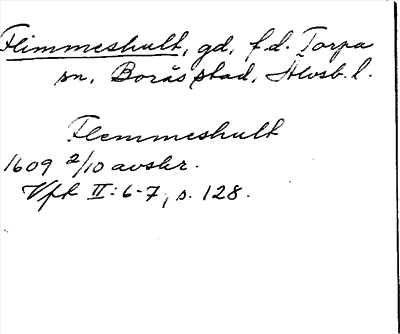 Flimmeshult, gd, f.d. Torpa
sn, Borås stad, Älvsb. l.
Flemmeshult
1609 2/10 avskr.
Vft II: 6-7, s. 128.